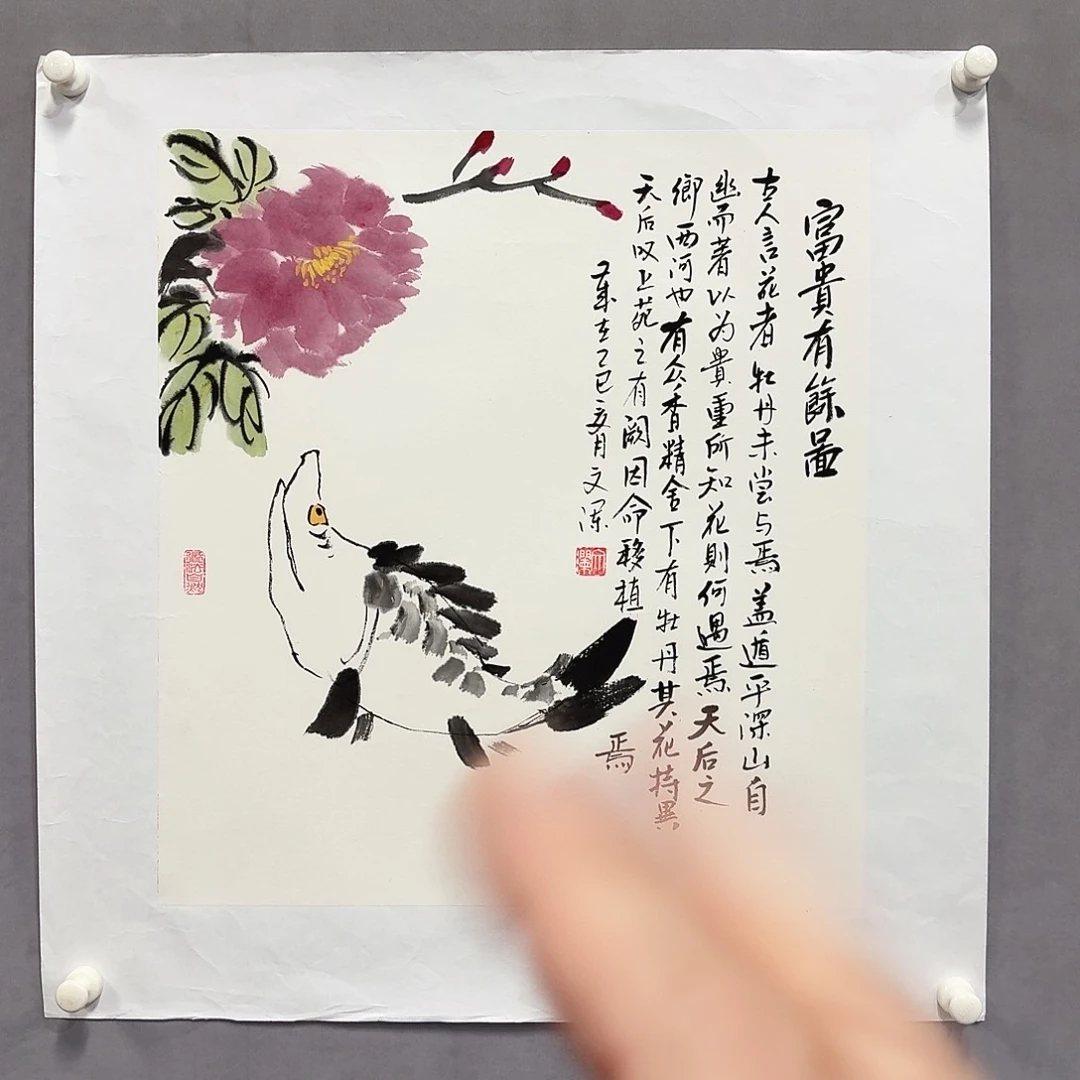 富貴有餘圖
古人言花者牡丹未尝与焉盖遁乎深山自
幽而著以为貴重所知花則何遇焉天后之
鄉西河也有众香精舍下有牡丹其花特異
天后叹上苑之有阙因命移植
焉
歲在乙巳亥月文澜
文瀾